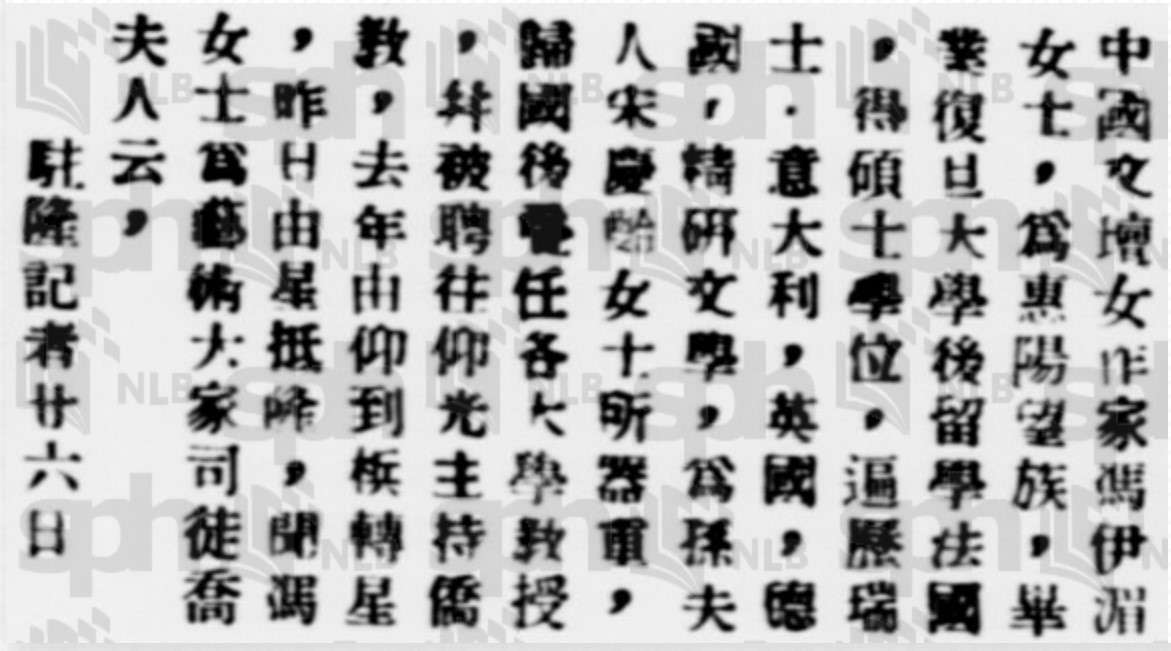 中國文壇女作家馮伊湄
女士，爲惠陽望族，畢
業復旦大學後留學法國
，得碩士學位，遍歷瑞
士．意大利，英國，德
國，精研文學，爲孫夫
人宋慶齡女士所器重，
歸國後曾任各大學教授
，并被聘往仰光主持僑
教，去年由仰到檳轉星
，昨日由星抵隆，聞馮
女士爲藝術大家司徒喬
夫人云，
駐隆記者廿六日